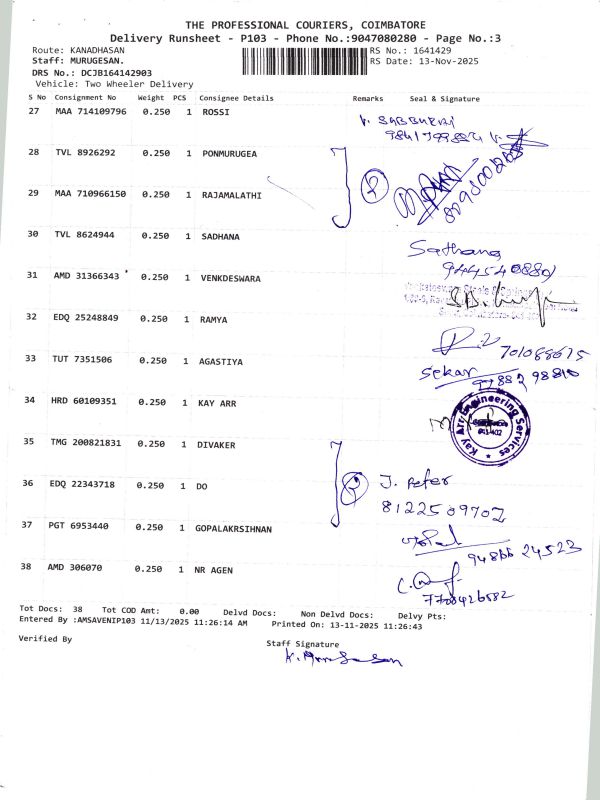 THE PROFESSIONAL COURIERS, COIMBATORE
Delivery Runsheet - P103 - Phone No.:9047080280 - Page No.:3
Route: KANADHASAN RS No.: 1641429
Staff: MURUGESAN. RS Date: 13-Nov-2025
DRS No.: DCJB164142903
Vehicle: Two Wheeler Delivery
S No Consignment No Weight PCS Consignee Details Remarks Seal & Signature
27 MAA 714109796 0.250 1 ROSSI
28 TVL 8926292 0.250 1 PONMURUGEA
2
29 MAA 710966150 0.250 1 RAJAMALATHI
30 TVL 8624944 0.250 1 SADHANA
Sathana
31 AMD 31366343 0.250 1 VENKDESWARA
32 EDQ 25248849 0.250 1 RAMYA
33 TUT 7351506 0.250 1 AGASTIYA
Sekar
97882 98810
34 HRD 60109351 0.250 1 KAY ARR
Kay Arr Engineering Services
35 TMG 200821831 0.250 1 DIVAKER
36 EDQ 22343718 0.250 1 DO
2
J. Peter
8122509702
37 PGT 6953440 0.250 1 GOPALAKRSIHNAN
94866 24523
38 AMD 306070 0.250 1 NR AGEN
7708426582
Tot Docs: 38 Tot COD Amt: 0.00 Delvd Docs: Non Delvd Docs: Delvy Pts:
Entered By :AMSAVENIP103 11/13/2025 11:26:14 AM Printed On: 13-11-2025 11:26:43
Verified By
Staff Signature